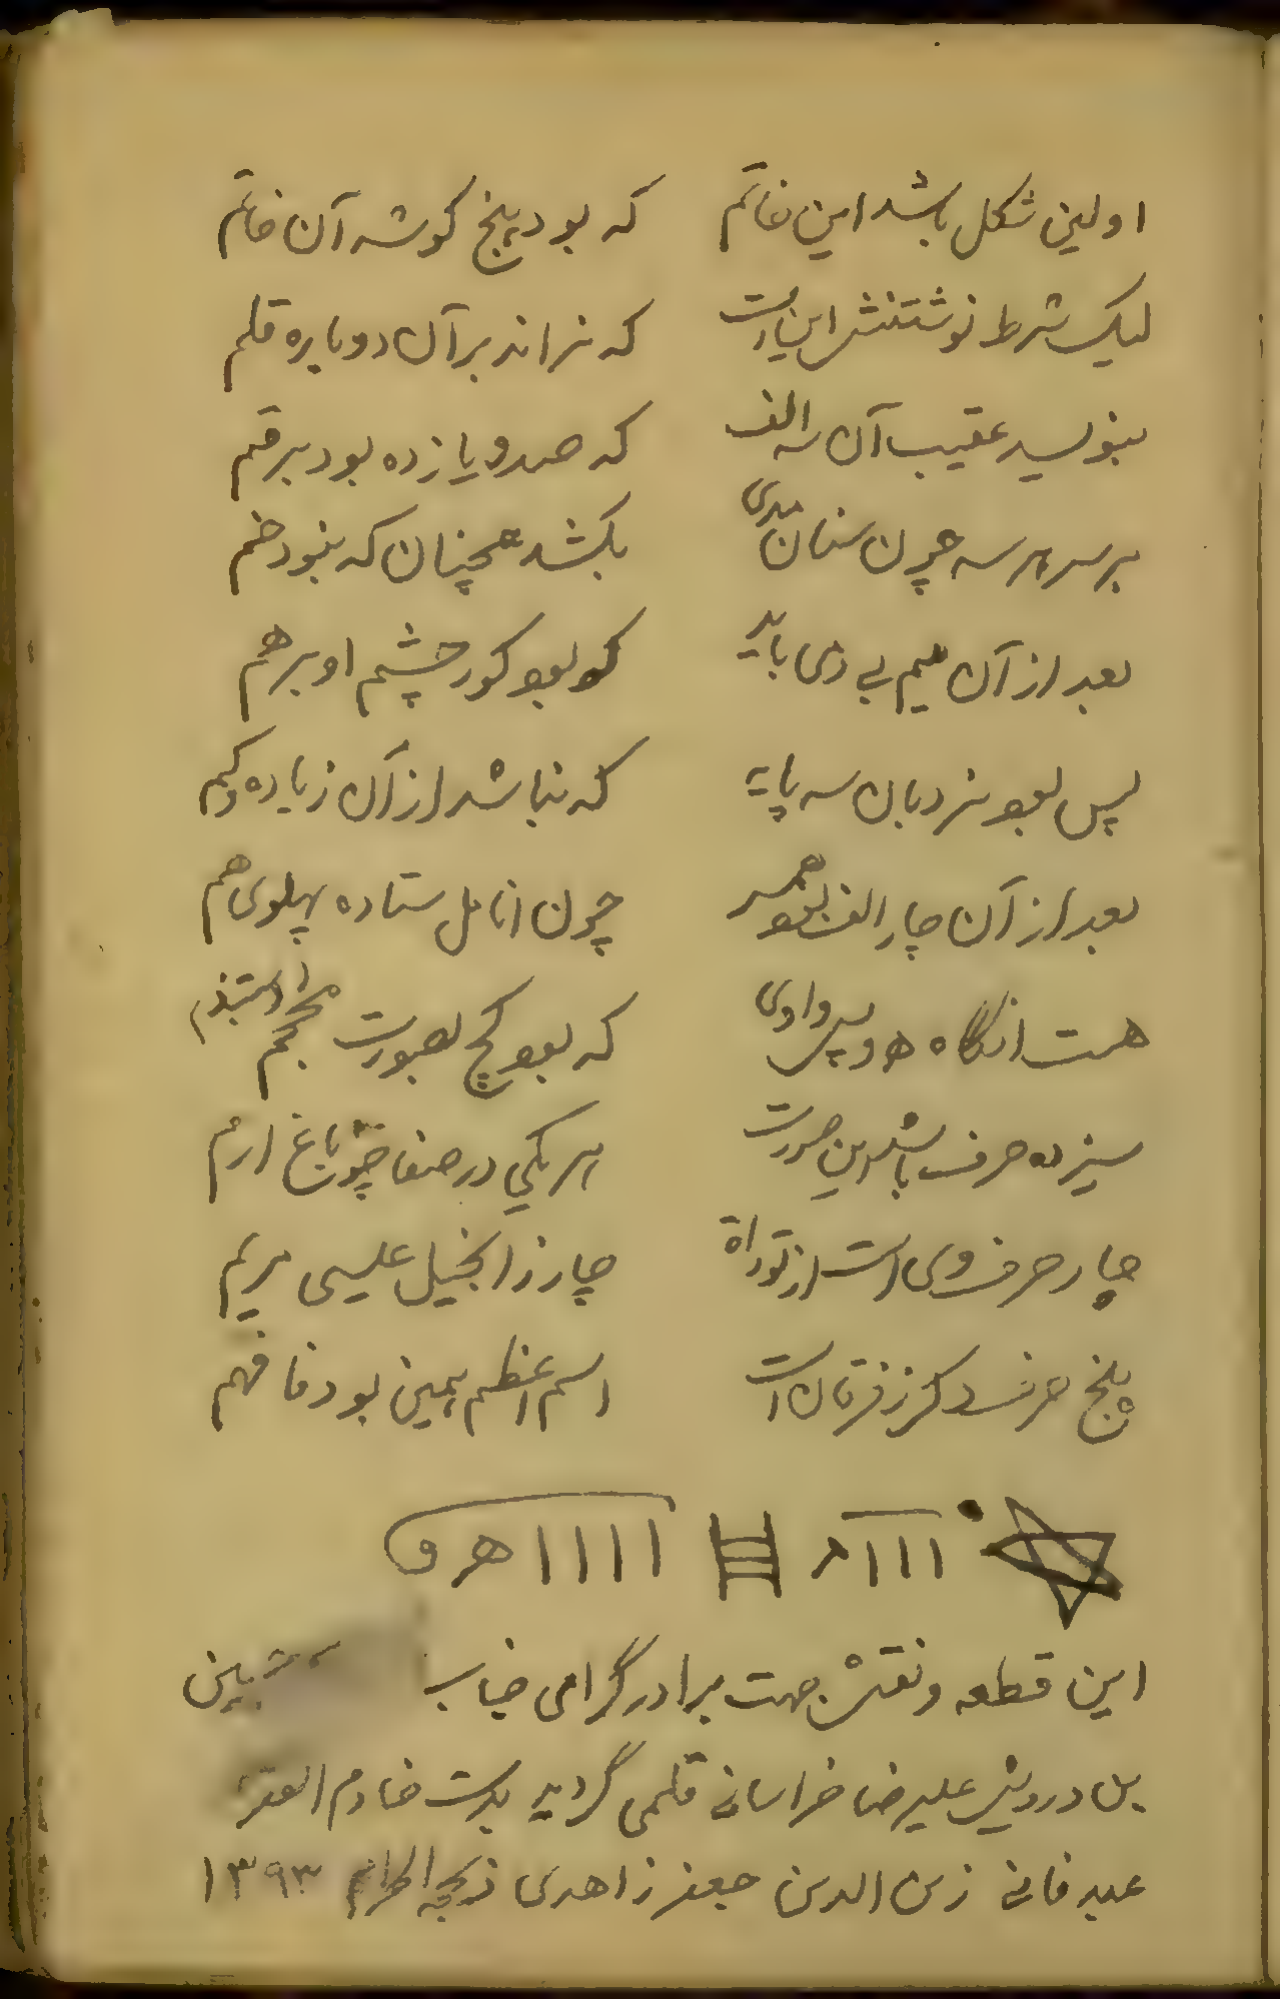 اولین شکل باشد این خاتم که بود پنج گوشه آن خاتم
لیک شرط نوشتنش این است که نراند بر آن دوباره قلم
بنویسد عقیب آن سه الف که صد و یازده بود برقم
بر سر هر سه چون سنان مدی بکشد همچنان که نبود خم
بعد از آن میم بی دمی باید کو بود کور چشم او بر هم
پس بود نردبان سه پایه که نباشد از آن زیاده و کم
بعد از آن چار الف بود همسر چون انامل ستاده پهلوی هم
هست انگاه ه و پس واوی که بود کج بصورت محجم
سیزده حرف باشد این صورت هر یکی در صفا چو باغ ارم
چار حرف وی است از توراة چار ز انجیل عیسی مریم
پنج حرف دگر ز فرقان است اسم اعظم همین بود فافهم
ااا م اااا ه و
این قطعه و نقش جهت برادر گرامی جناب
درویش علیرضا خراسانی قلمی گردید بدست خادم الفقرا
عبد فانی زین الدین جعفر زاهدی ذیحجه الحرام ۱۳۹۳